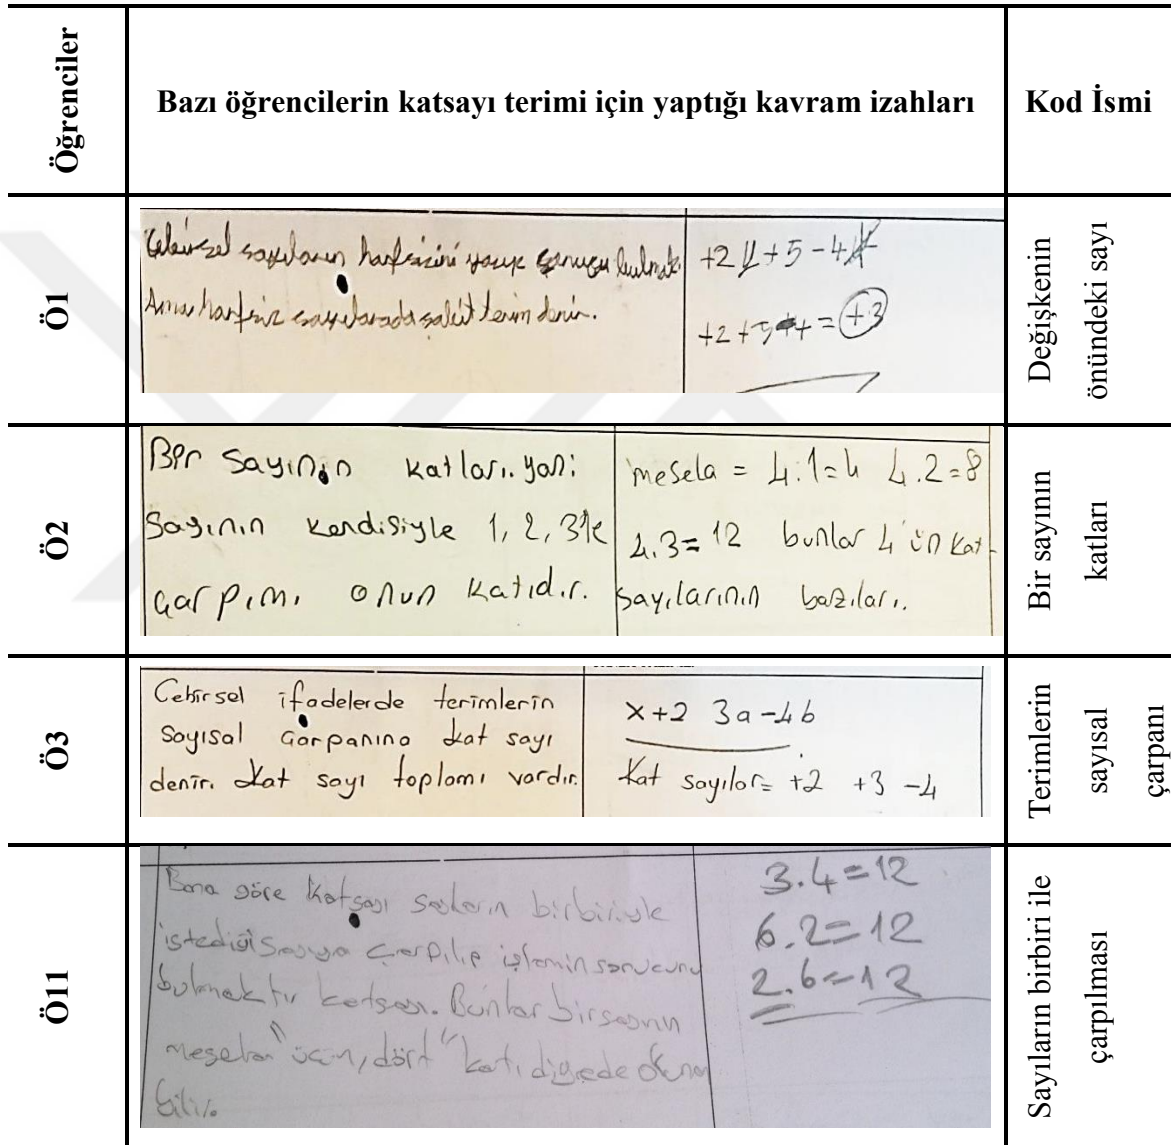 Öğrenciler
Bazı öğrencilerin katsayı terimi için yaptığı kavram izahları
Kod İsmi
Ö1
sayıların harfsizini sonucu bulmak
Ama harfsiz sayılarada sabit terim denir.
+2y+5-4
+2+5 4=+3
Değişkenin
önündeki sayı
Ö2
Bir sayının katları. yani
sayının kendisiyle 1, 2, 3'le
çarpımı onun katıdır.
mesela = 4.1=4 4.2=8
4.3=12 bunlar 4'ün kat-
sayılarının bazıları.
Bir sayının
katları
Ö3
Cebirsel ifadelerde terimlerin
sayısal çarpanına kat sayı
denir. Kat sayı toplamı vardır.
x+2 3a-4b
Kat sayılar= +2 +3 -4
Terimlerin
sayısal
çarpanı
Ö11
Bana göre katsayı sayıların birbiriyle
istediği sayıya çarpılıp işlemin sonucunu
bulmaktır katsayı. Bunlar bir sayının
mesela "üçün, dört" katı diyede okuna
bilir.
3.4=12
6.2=12
2.6=12
Sayıların birbiri ile
çarpılması